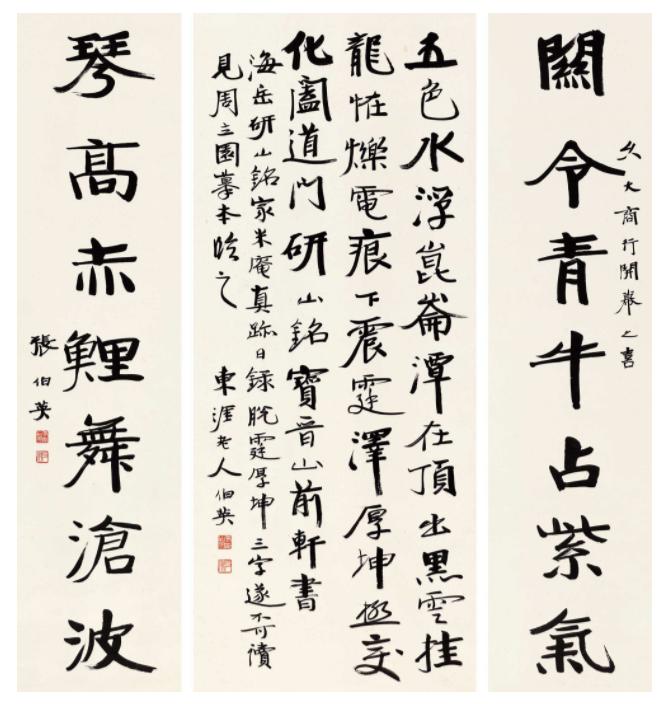 闗令青牛占紫氣
久大商行開幕之喜
五色水浮崑崙潭在頂出黑雲挂
龍怪爍電痕下震霆澤厚坤極变
化闔道門研山銘寶晋山前軒書
海岳研山銘家米庵真跡日録脱霆厚坤三字遂不可讀
見周立園摹本臨之
東涯老人伯英
琴高赤鯉舞滄波
張伯英